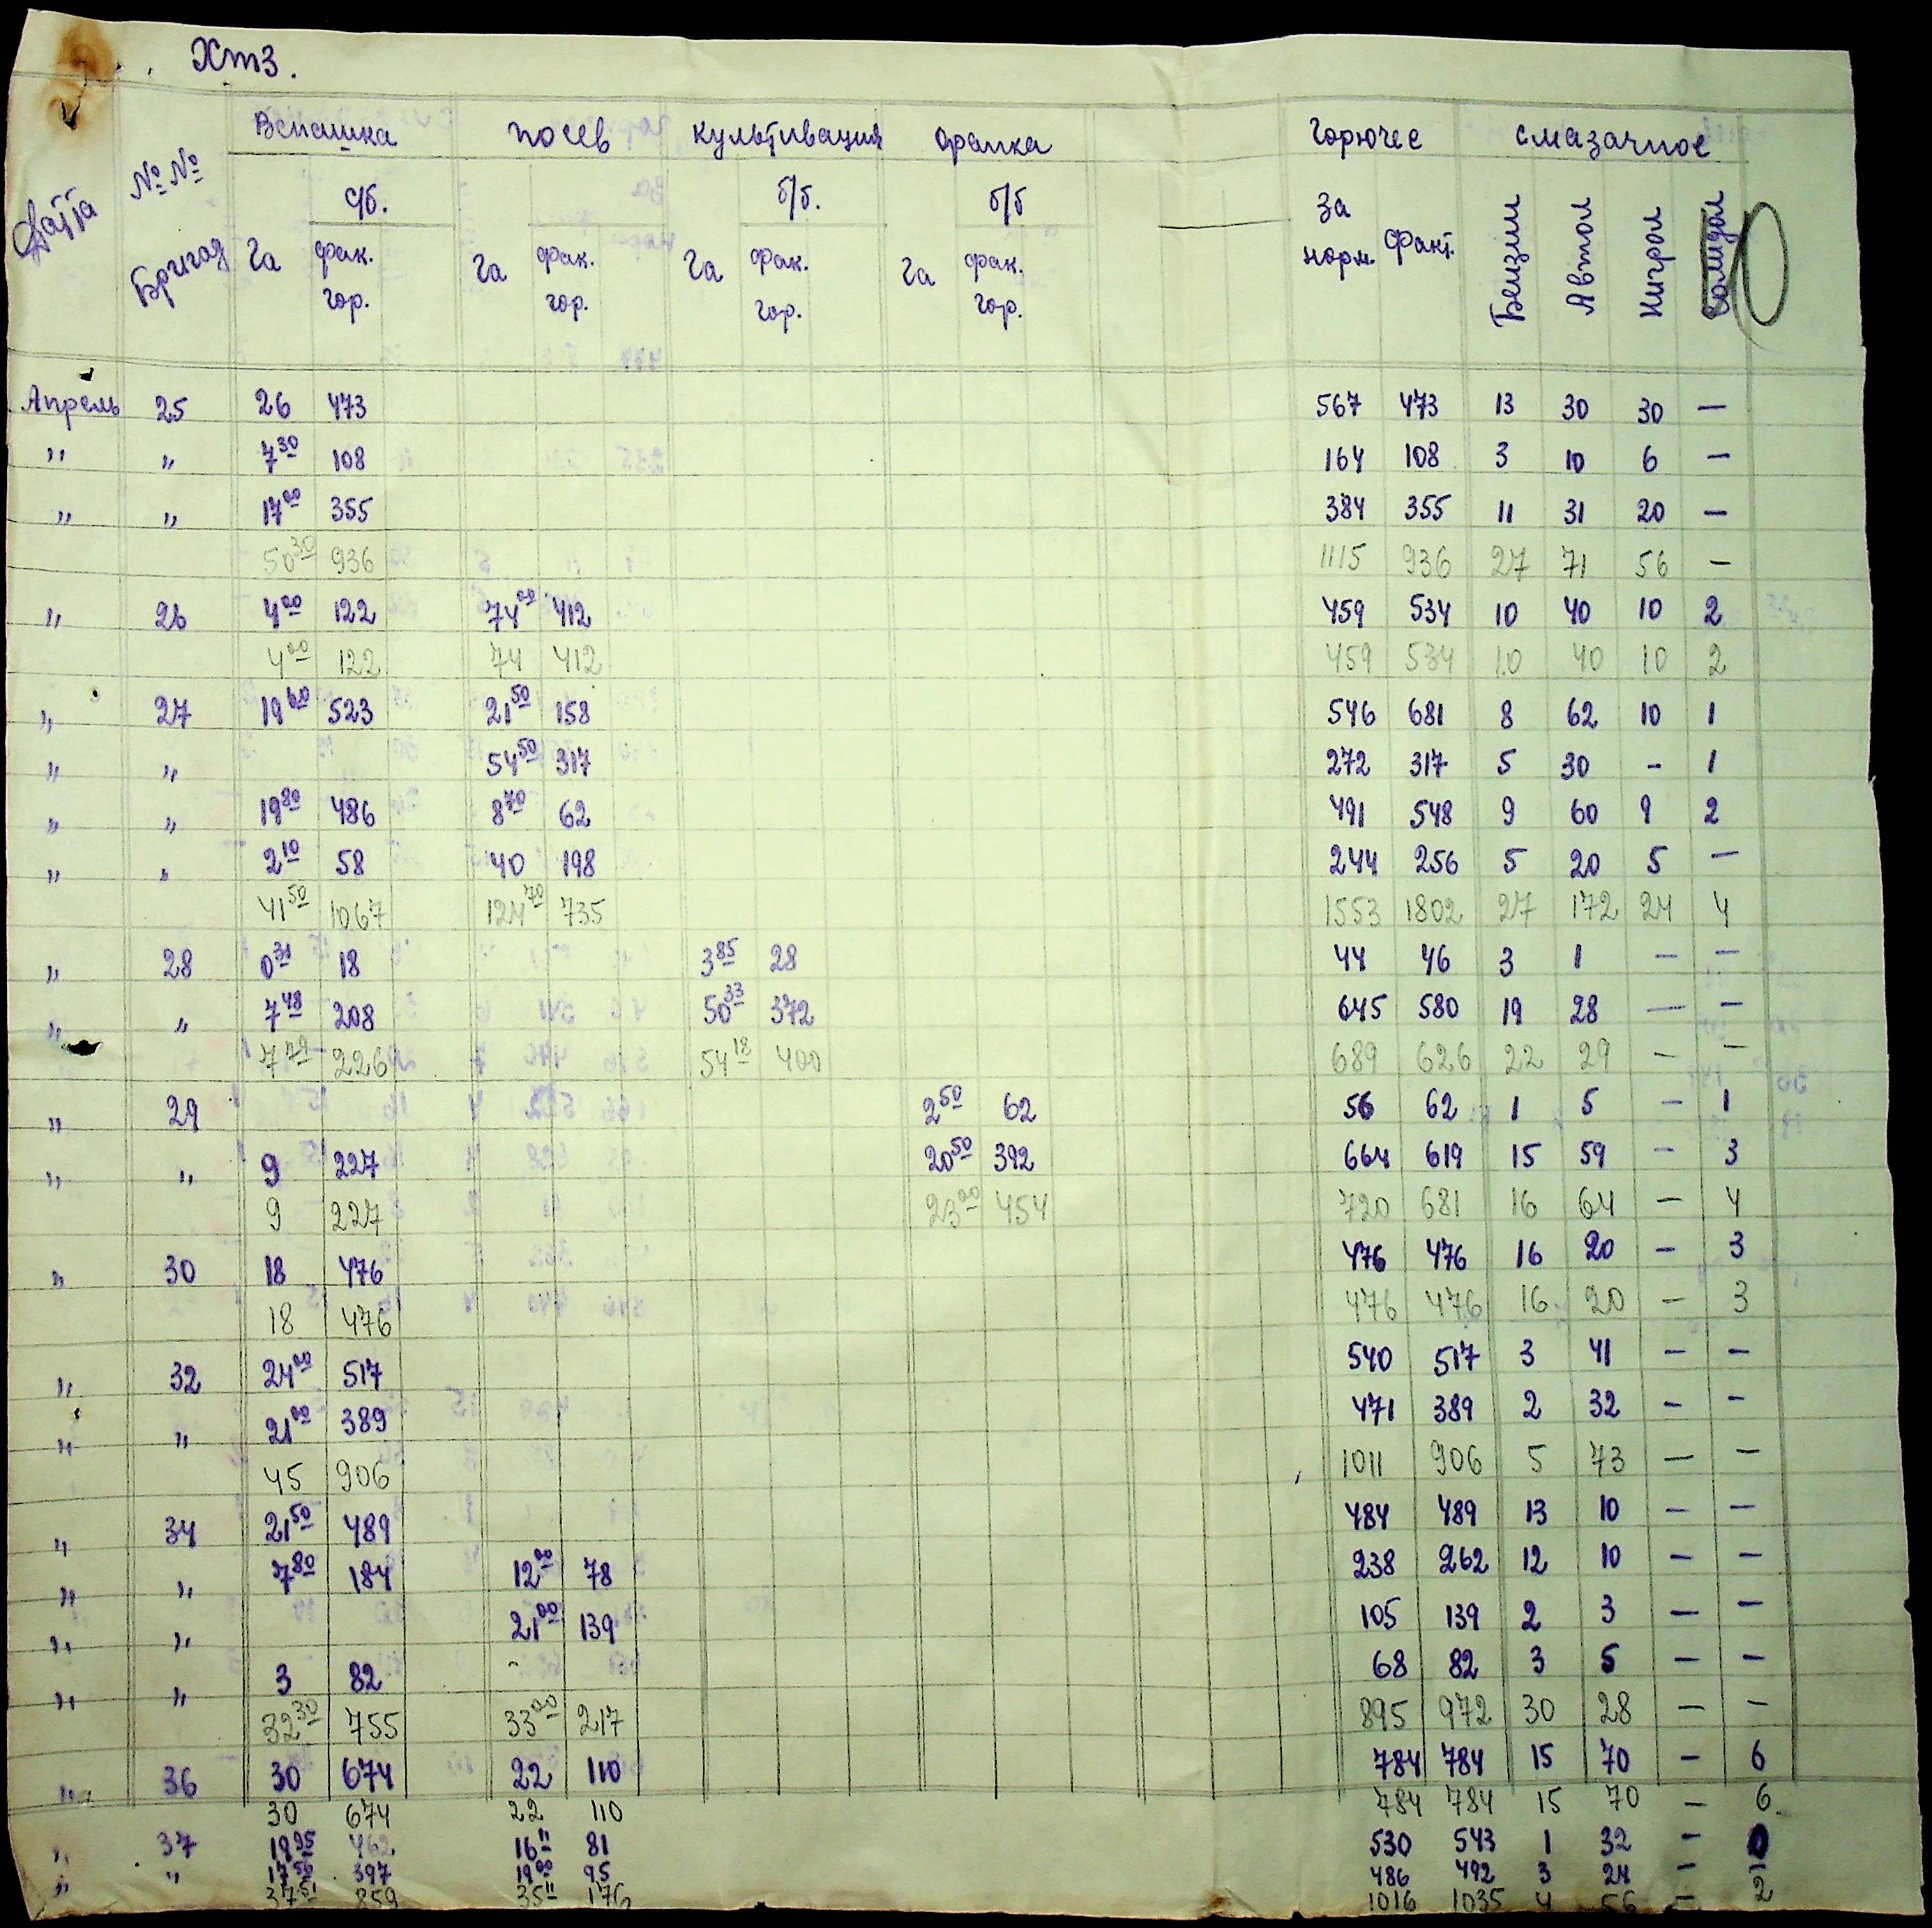 ХТЗ.
Вспашка посев культивация драпка горючее смазачное
Датта №№ Бригад Га с/б. фак. гор. Га фак. гор. Га б/б. фак. гор. Га б/б фак. гор. За норм. Факт. Бензин Автол Нигрол Солидол
Апрель 25 26 473 567 473 13 30 30 —
" " 7 30 108 164 108 3 10 6 —
" " 17 00 355 384 355 11 31 20 —
50 30 936 1115 936 27 71 56 —
" 26 4 00 122 74 00 412 459 534 10 40 10 2
4 00 122 74 412 459 534 10 40 10 2
" 27 19 60 523 21 50 158 546 681 8 62 10 1
" " 54 50 317 272 317 5 30 - 1
" " 19 80 486 8 70 62 491 548 9 60 9 2
" " 2 10 58 40 198 244 256 5 20 5 —
41 50 1067 124 70 735 1553 1802 27 172 24 4
" 28 0 31 18 3 85 28 44 46 3 1 — —
" " 7 48 208 50 33 372 645 580 19 28 — —
7 79 226 54 18 400 689 626 22 29 — —
" 29 2 50 62 56 62 1 5 — 1
" " 9 227 20 50 392 664 619 15 59 — 3
9 227 23 00 454 720 681 16 64 — 4
" 30 18 476 476 476 16 20 — 3
18 476 476 476 16 20 — 3
" 32 24 00 517 540 517 3 41 — —
" " 21 00 389 471 389 2 32 — —
45 906 1011 906 5 73 — —
" 34 21 50 489 484 489 13 10 — —
" " 7 80 184 12 00 78 238 262 12 10 — —
" " 21 00 139 105 139 2 3 — —
" " 3 82 68 82 3 5 — —
32 30 755 33 00 217 895 972 30 28 — —
" 36 30 674 22 110 784 784 15 70 — 6
30 674 22 110 784 784 15 70 — 6
" 37 19 95 462 16 11 81 530 543 1 32 —
" " 17 56 397 19 00 95 486 492 3 24 —
37 51 859 35 11 176 1016 1035 4 56 — 2